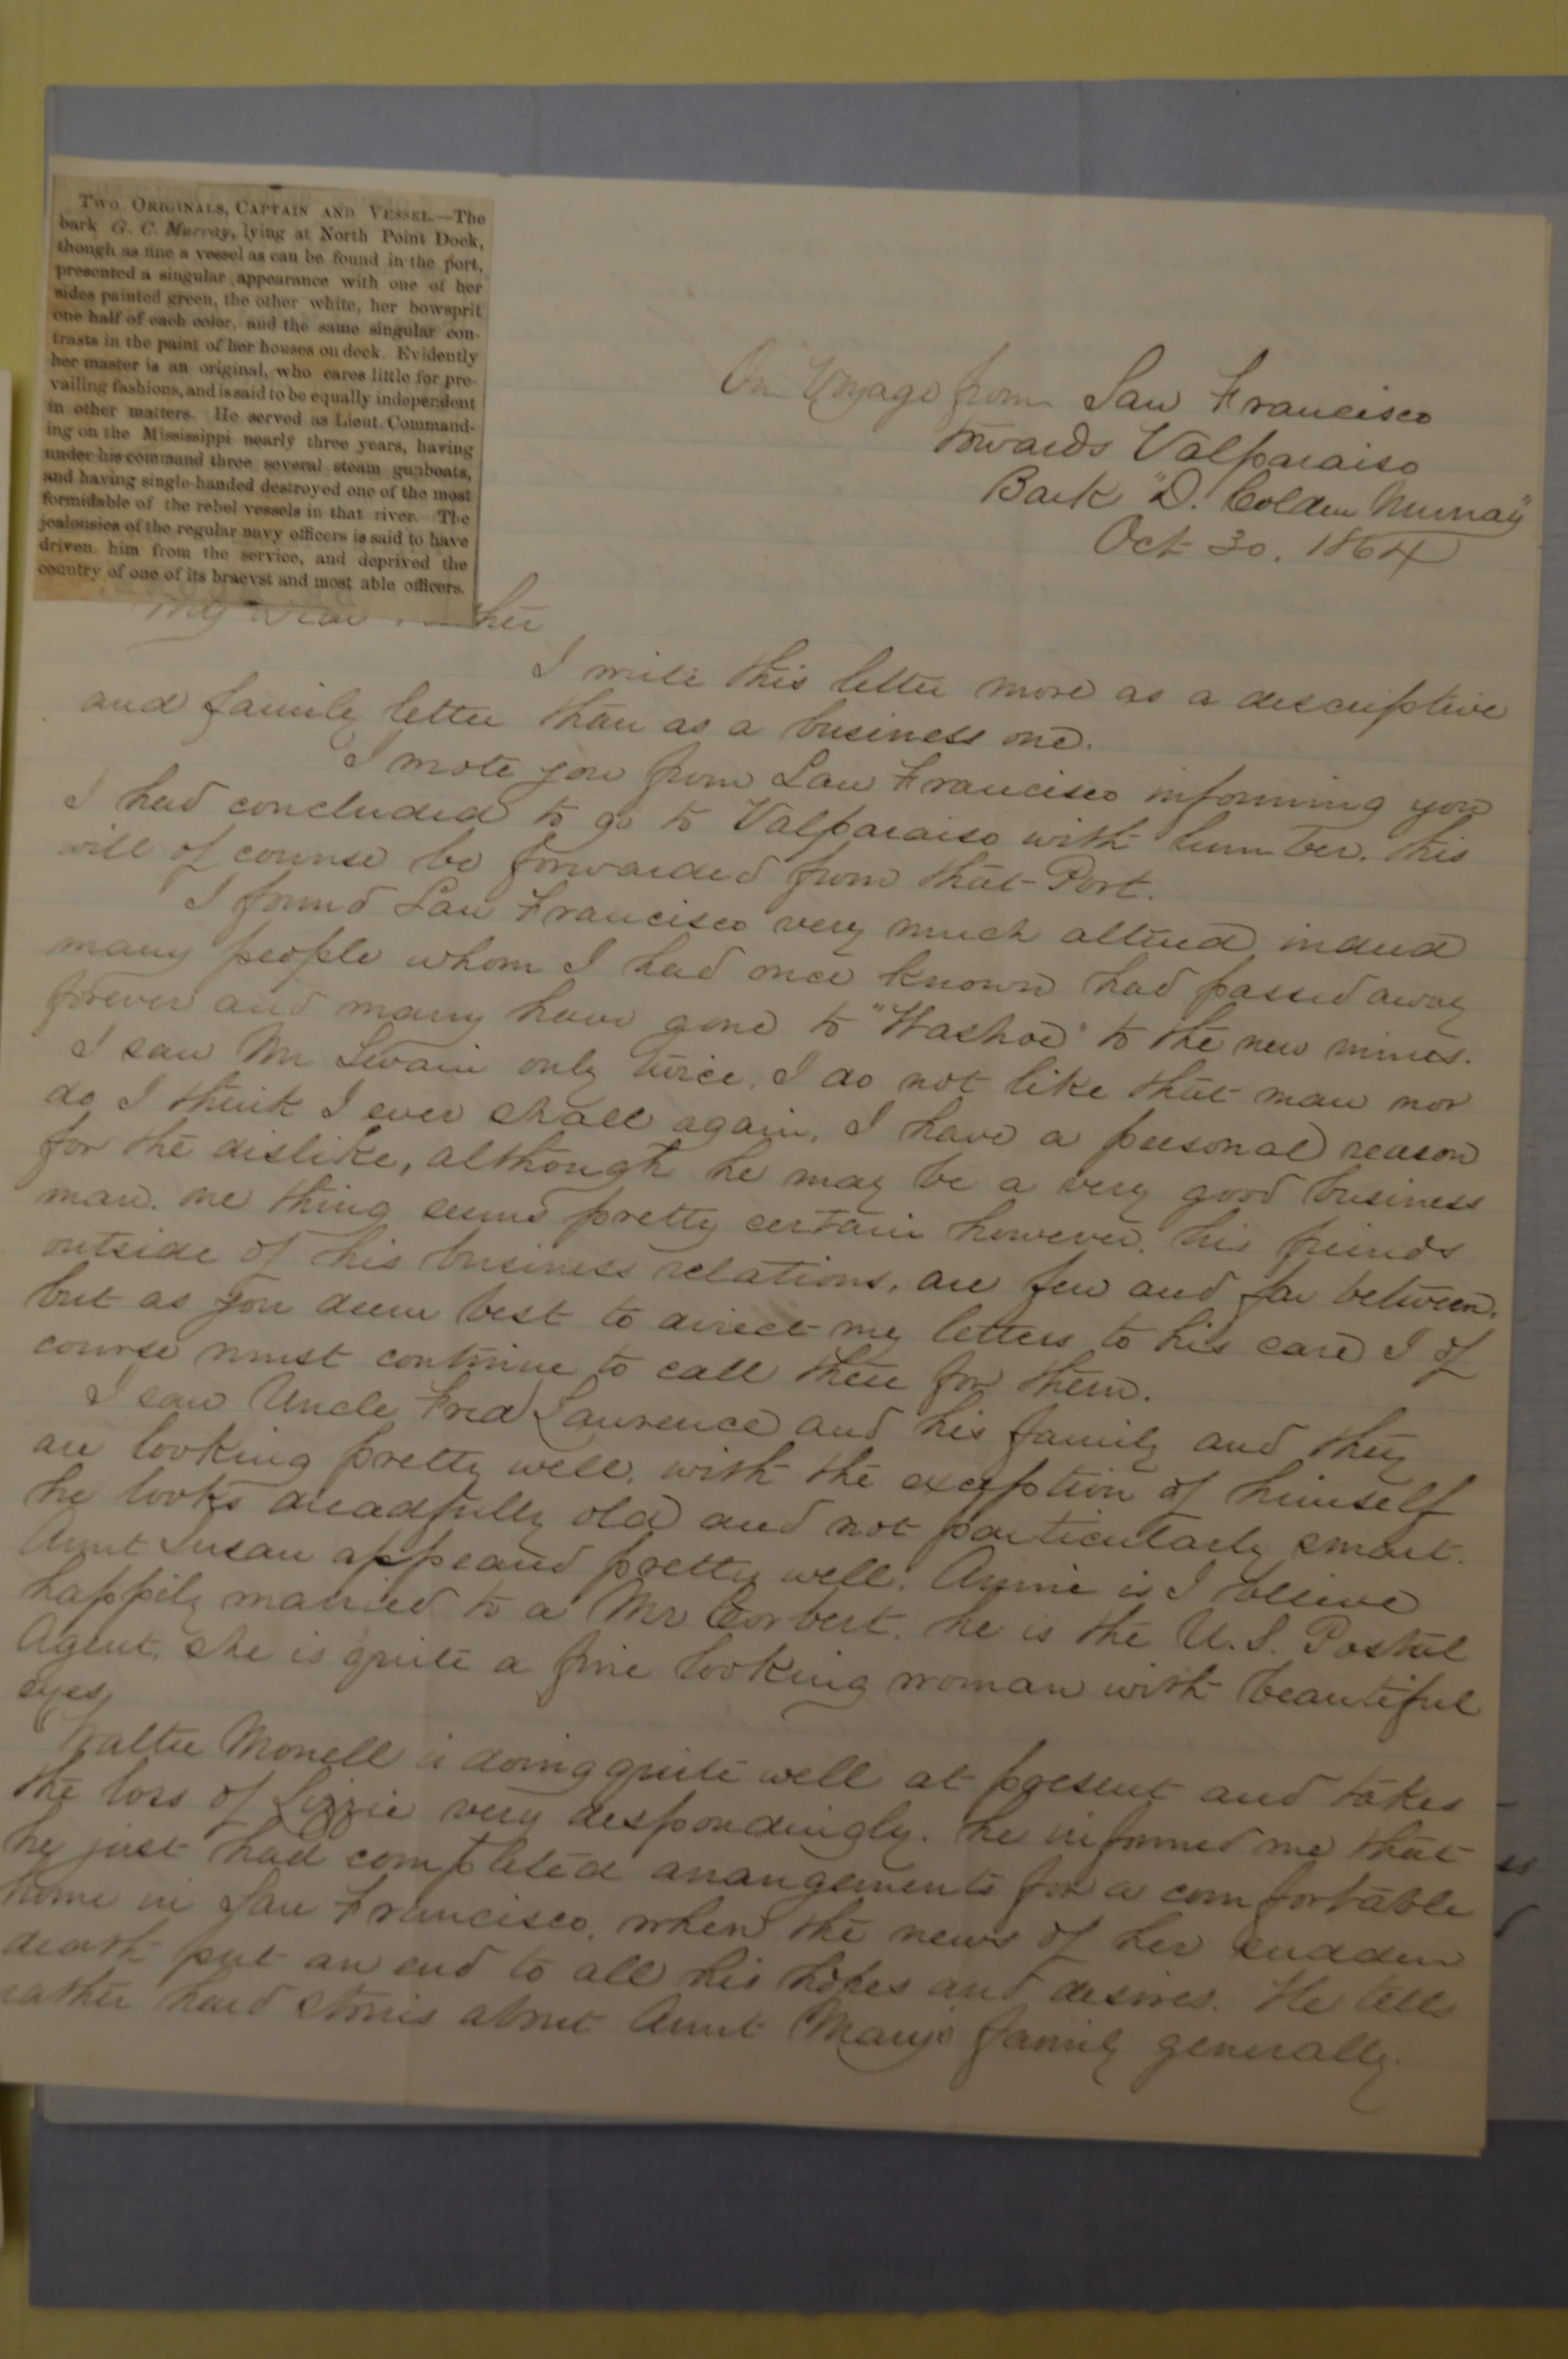 TWO ORIGINALS, CAPTAIN AND VESSEL.—The
bark G. C. Murray, lying at North Point Dock,
though as fine a vessel as can be found in the port,
presented a singular appearance with one of her
sides painted green, the other white, her bowsprit
one half of each color, and the same singular con-
trasts in the paint of her houses on deck. Evidently
her master is an original, who cares little for pre-
vailing fashions, and is said to be equally independent
in other matters. He served as Lieut. Command-
ing on the Mississippi nearly three years, having
under his command three several steam gunboats,
and having single-handed destroyed one of the most
formidable of the rebel vessels in that river. The
jealousies of the regular navy officers is said to have
driven him from the service, and deprived the
country of one of its braevst and most able officers.
On Voyage from San Francisco
towards Valparaiso
Bark "D. Colden Murray"
Oct 30. 1864
My Dear
I write this letter more as a descriptive
and family letter than as a business one.
I wrote you from San Francisco informing you
I had concluded to go to Valparaiso with lumber. this
will of course be forwarded from that Port.
I found San Francisco very much altered indeed
many people whom I had once known had passed away
forever and many have gone to "Washoe" to the new mines.
I saw Mr Swain only twice, I do not like that man nor
do I think I ever shall again, I have a personal reason
for the dislike, although he may be a very good business
man. one thing seems pretty certain however, his friends
outside of his business relations, are few and far between.
but as you deem best to direct my letters to his care I of
course must continue to call there for them.
I saw Uncle Fred Lawrence and his family and they
are looking pretty well, with the exception of himself
he looks dreadfully old and not particularly smart.
Aunt Susan appeared pretty well. Annie is I believe
happily married to a Mr Corbert. he is the U.S. Postal
Agent, she is quite a fine looking woman with beautiful
eyes,
Walter Monell is doing quite well at present and takes
the loss of Lizzie very despondingly. he informed me that
he just had completed arrangements for a comfortable
home in San Francisco, when the news of her sudden
death put an end to all his hopes and desires. He tells
rather hard stories about Aunt Mary's family generally.